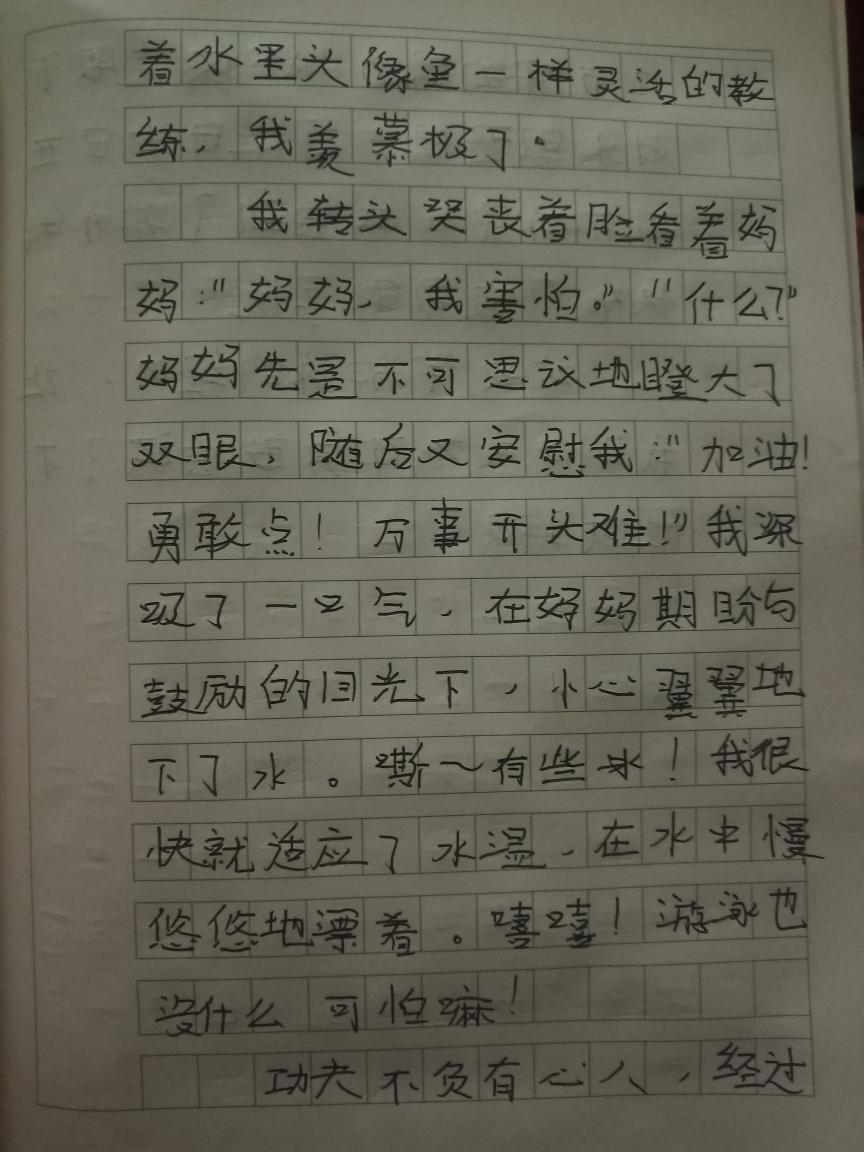 着水里头像鱼一样灵活的教
练，我羡慕极了。
我转头哭丧着脸看着妈
妈：“妈妈，我害怕。”“什么？”
妈妈先是不可思议地瞪大了
双眼，随后又安慰我：“加油！
勇敢点！万事开头难！”我深
吸了一口气，在妈妈期盼与
鼓励的目光下，小心翼翼地
下了水。嘶～有些冰！我很
快就适应了水温，在水中慢
悠悠地漂着。嘻嘻！游泳也
没什么可怕嘛！
功夫不负有心人，经过